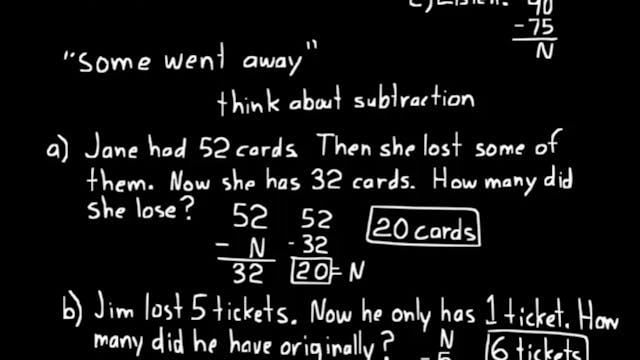 c) Listen: 90
- 75
N
"Some went away"
think about subtraction
a) Jane had 52 cards. Then she lost some of
them. Now she has 32 cards. How many did
she lose?
52
- N
32
52
- 32
20 = N
20 cards
b) Jim lost 5 tickets. Now he only has 1 ticket. How
many did he have originally?
N
- 5
6 tickets